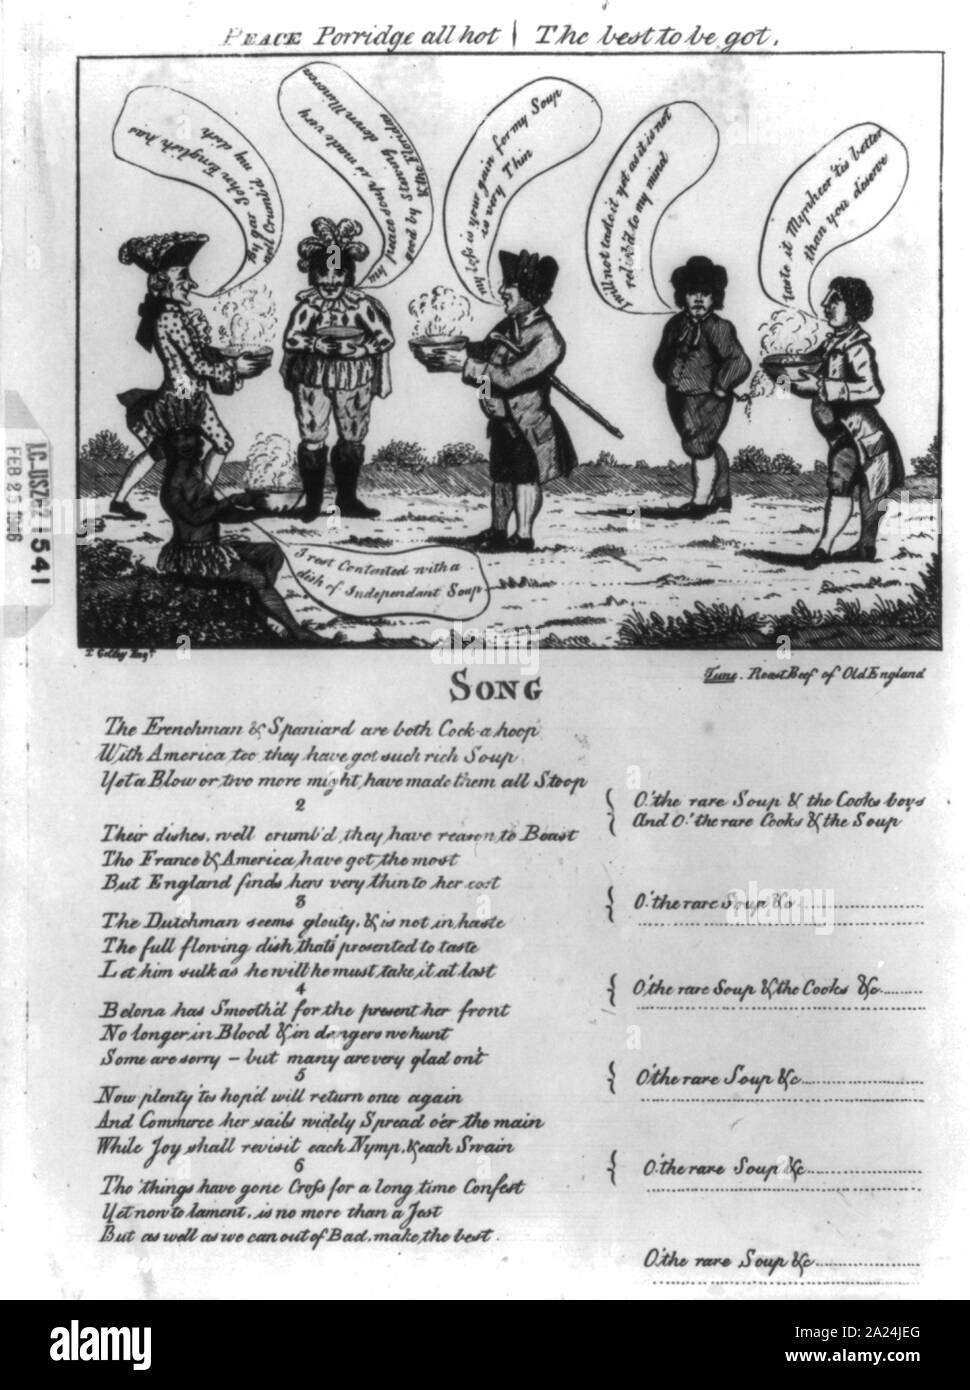 PEACE Porridge all hot | The best to be got.
by gar John English has
well Crumb'd my dish
his peace soup is made very
good by Stewing down Minorca
& the Floridas
my loss is your gain for my Soup
is very Thin
I will not taste it yet as it is not
relish'd to my mind
taste it Mynheer 'tis better
than you deserve
I rest Contented with a
dish of Independant Soup
LC-USZ62 1541
FEB 25 1966
Tune. Roast Beef of Old England
SONG
The Frenchman & Spaniard are both Cock-a hoop
With America too they have got such rich Soup
Yet a Blow or two more might have made them all Stoop
O! the rare Soup & the Cooks boys
And O! the rare Cooks & the Soup
2
Their dishes, well crumb'd, they have reason to Boast
Tho France & America have got the most
But England finds hers very thin to her cost
O! the rare Soup &c
3
The Dutchman seems glouty, & is not in haste
The full flowing dish that's presented to taste
Let him sulk as he will he must take it at last
O! the rare Soup & the Cooks &c
4
Belona has Smooth'd for the present her front
No longer in Blood & in dangers we hunt
Some are sorry – but many are very glad on't
O! the rare Soup &c
5
Now plenty 'tis hop'd will return once again
And Commerce her sails widely Spread o'er the main
While Joy shall revisit each Nymp, & each Swain
O! the rare Soup &c
6
Tho 'things have gone Cross for a long time Confest
Yet now to lament, is no more than a Jest
But as well as we can out of Bad, make the best
O! the rare Soup &c
alamy
Image ID: 2A24JEG
www.alamy.com